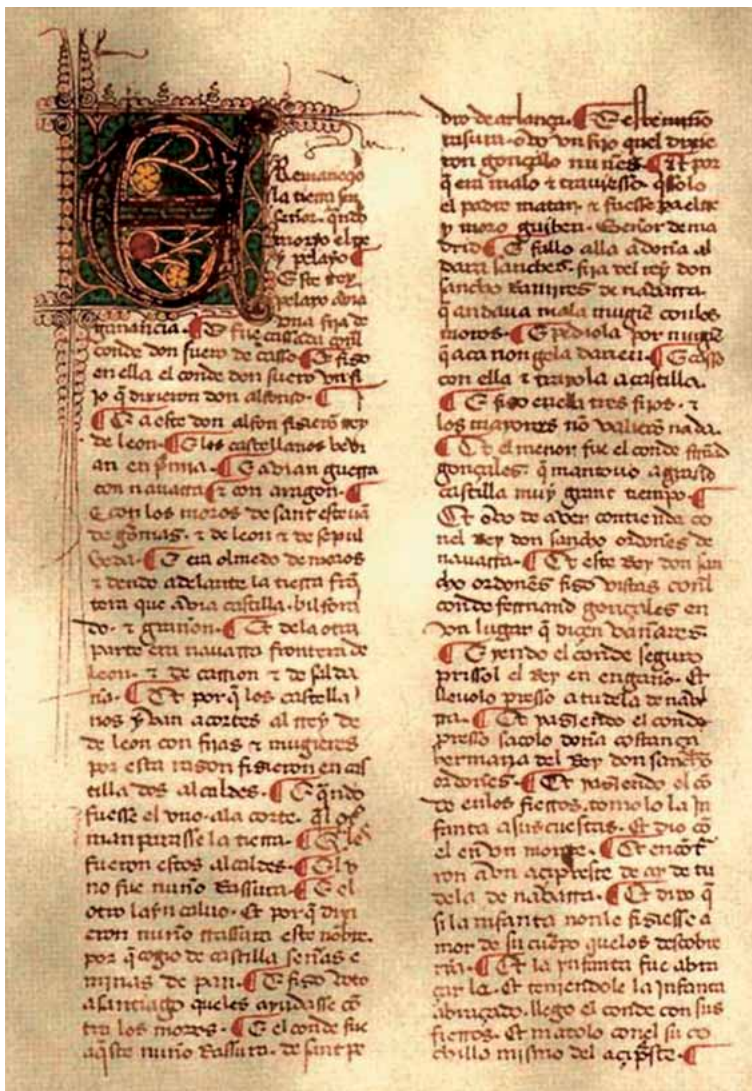 E Remaneçio
la tierra sin
señor. qndo
morio el rre
y pelayo ¶
Este rey
pelayo avia
vna fija de
ganançia. ¶ E fue cassada conl
conde don suero de casso ¶ Et fiso
en ella el conde don suero vn fi
jo q̃ dixieron don alfonso. ¶
¶ E a este don alfon fisierõ rey
de leon. ¶ E los castellanos bevi
an en p̃mia. ¶ E avian guerra
con navarra ¶ ⁊ con aragon. ¶
E con los moros de sant esteuã
de gormas. ⁊ de leon ⁊ de sepul
veda. ¶ E era olmedo de moros
⁊ dende adelante la tierra frõ
tera que avia castilla. bilfora
do. ⁊ grañon. ¶ Et dela otra
parte era navarra frontera de
leon. ⁊ de carrion ⁊ de salda
ña. ¶ Et por q̃ los castella
nos yvan a cortes al rrey de
de leon con fijas ⁊ mugieres
por esta rrason fisieron en cas
tilla dos alcaldes. ¶ E qñdo
fuesse el vno. ala corte.
manparasse la tierra. ¶
fueron estos alcaldes. ¶ El v
no fue nuño Rassura. ¶ E el
otro layn calvo. Et por q̃ dixi
eron nuño rrassura este nõbre.
por q̃ cogio de castilla señas e
minas de pan. ¶ E fiso voto
a santiago queles ayudasse cõ
tra los moros. ¶ E el conde fue
aq̃ste nuño Rassura. de sant pe
dro de arlança. ¶ E este nuño
rasura. ovo vn fijo quel dixie
ron gonçalo nuñes. ¶ Et por
q̃ era malo ⁊ traviesso. q̃ssolo
el padre matar. ⁊ fuesse pa el rre
y moro guiben. Señor de ma
drid. ¶ E fallo alla a doña al
dara sanches. fija del rey don
sancho Ramires de navarra.
q̃ andava mala mugier con los
moros. ¶ E pediola por mugier
q̃ aca non gela darien. ¶ E casso
con ella ⁊ traxola a castilla.
¶ E fiso enella tres fijos. ⁊
los mayores nõ valierõ nada.
¶ Et el menor fue el conde fernãd
gonçales. q̃ mantovo a
castilla muy grant tiempo. ¶
Et ovo de aver contienda co
nel Rey don sancho ordones de
navarra. ¶ Et este Rey don san
cho ordones fiso vistas conl
conde fernand gonçales en
vn lugar q̃ diçen vañares.
¶ E yendo el conde seguro
prissol el Rey en engaño. Et
llevolo presso a tudela de nava
rra. ¶ Et yasiendo el conde
presso sacolo doña costança
hermana del Rey don sancho
ordones. ¶ Et yasiendo el cõ
de enlos fierros. tomolo la in
fanta a sus cuestas. Et dio cõ
el en vn monte. ¶ Et encõt
ron a vn açip̃reste de ay de tu
dela de navarra. ¶ Et dixo q̃
si la infanta nonle fisiesse a
mor de su cuerpo quelos descobre
ria. ¶ Et la ynfanta fue abra
çar le. Et teniendole la infanta
abraçado. llego el conde con sus
fierros. Et matolo conel su co
chillo mismo del açip̃ste. ¶